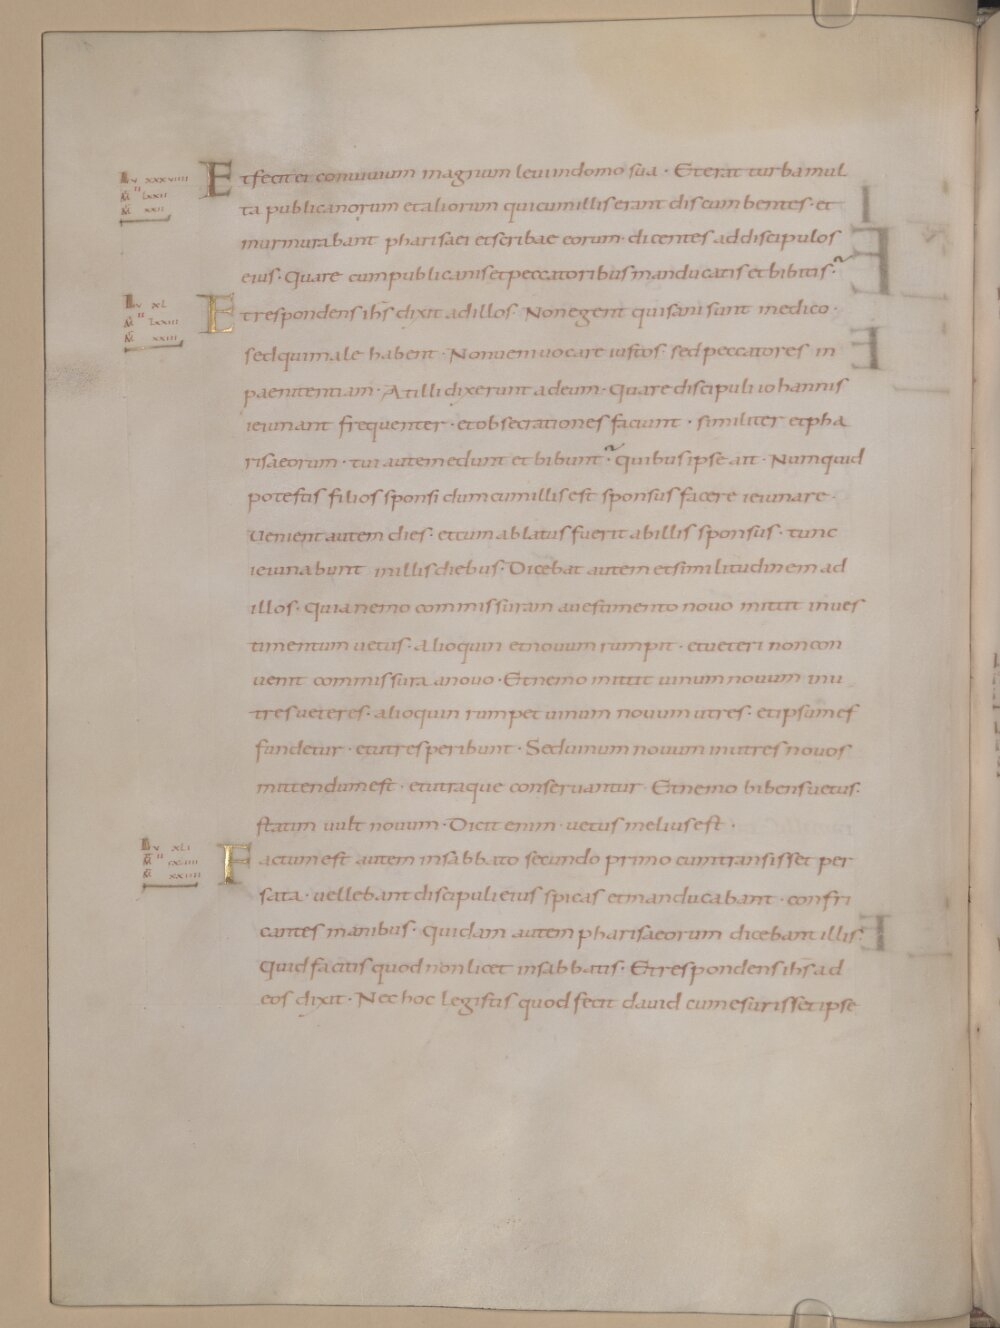 Lu xxxviiii
M̅ II Lxxii
M̅ xxii
Et fecit ei conuiuium magnum leui in domo sua · Et erat turba mul
ta publicanorum et aliorum qui cum illis erant discumbentes · et
murmurabant pharisaei et scribae eorum · dicentes ad discipulos
eius · Quare cum publicanis et peccatoribus manducatis et bibitis ·
Lu xL
M̅ II Lxxiii
M̅ xxiii
Et respondens ihs̅ dixit ad illos · Non egent qui sani sunt medico ·
sed qui male habent · Non ueni uocare iustos · sed peccatores in
paenitentiam · At illi dixerunt ad eum · Quare discipuli iohannis
ieiunant frequenter · et obsecrationes faciunt · similiter et pha
risaeorum · tui autem edunt et bibunt · quibus ipse ait · Numquid
potestis filios sponsi dum cum illis est sponsus facere ieiunare ·
Uenient autem dies · et cum ablatus fuerit ab illis sponsus · tunc
ieiunabunt in illis diebus · Dicebat autem et similitudinem ad
illos · Quia nemo commissuram a uestimento nouo mittit in ues
timentum uetus · alioquin et nouum rumpit · et ueteri non con
uenit commissura a nouo · Et nemo mittit uinum nouum in u
tres ueteres · alioquin rumpet uinum nouum utres · et ipsum ef
fundetur · et utres peribunt · Sed uinum nouum in utres nouos
mittendum est · et utraque conseruantur Et nemo bibens uetus ·
statim uult nouum · Dicit enim · uetus melius est ·
Lu xLi
M̅ II cxiiii
M̅ xxiiii
Factum est autem in sabbato secundo primo cum transisset per
sata · uellebant discipuli eius spicas et manducabant · confri
cantes manibus · Quidam autem pharisaeorum dicebant illis ·
Quid facitis quod non licet in sabbatis · Et respondens ihs̅ ad
eos dixit · Nec hoc legistis quod fecit dauid cum esurisset ipse